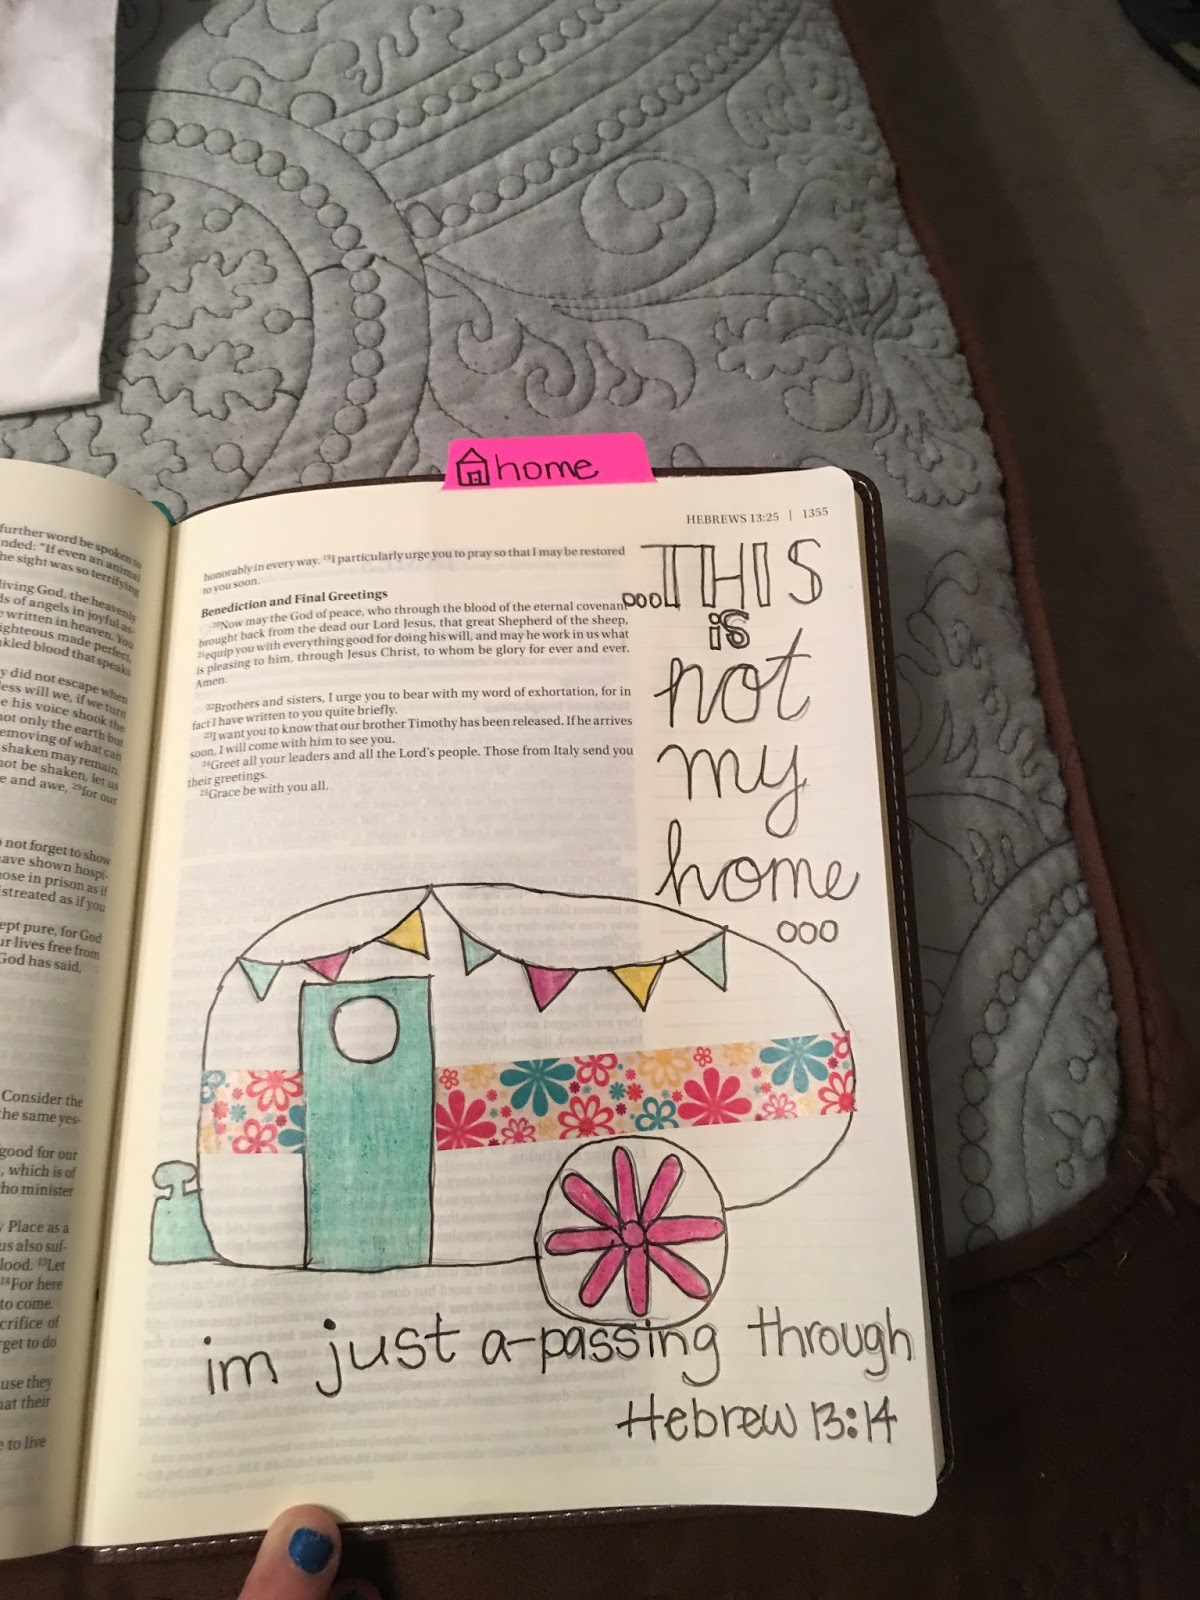 home
HEBREWS 13:25 | 1355
further word be spoken to
nded: "If even an animal
he sight was so terrifying
living God, the heavenly
ds of angels in joyful as-
e written in heaven. You
righteous made perfect,
nkled blood that speaks
y did not escape when
less will we, if we turn
e his voice shook the
not only the earth but
emoving of what can
shaken may remain.
not be shaken, let us
e and awe, 29for our
not forget to show
have shown hospi-
hose in prison as if
istreated as if you
ept pure, for God
ur lives free from
God has said,
Consider the
the same yes-
good for our
, which is of
who minister
y Place as a
us also suf-
lood. 13Let
14For here
to come.
crifice of
rget to do
use they
hat their
e to live
honorably in every way. 19I particularly urge you to pray so that I may be restored
to you soon.
Benediction and Final Greetings
20Now may the God of peace, who through the blood of the eternal covenant
brought back from the dead our Lord Jesus, that great Shepherd of the sheep,
21equip you with everything good for doing his will, and may he work in us what
is pleasing to him, through Jesus Christ, to whom be glory for ever and ever.
Amen.
22Brothers and sisters, I urge you to bear with my word of exhortation, for in
fact I have written to you quite briefly.
23I want you to know that our brother Timothy has been released. If he arrives
soon, I will come with him to see you.
24Greet all your leaders and all the Lord's people. Those from Italy send you
their greetings.
25Grace be with you all.
...THIS
is
not
my
home
...
im just a-passing through
Hebrew 13:14